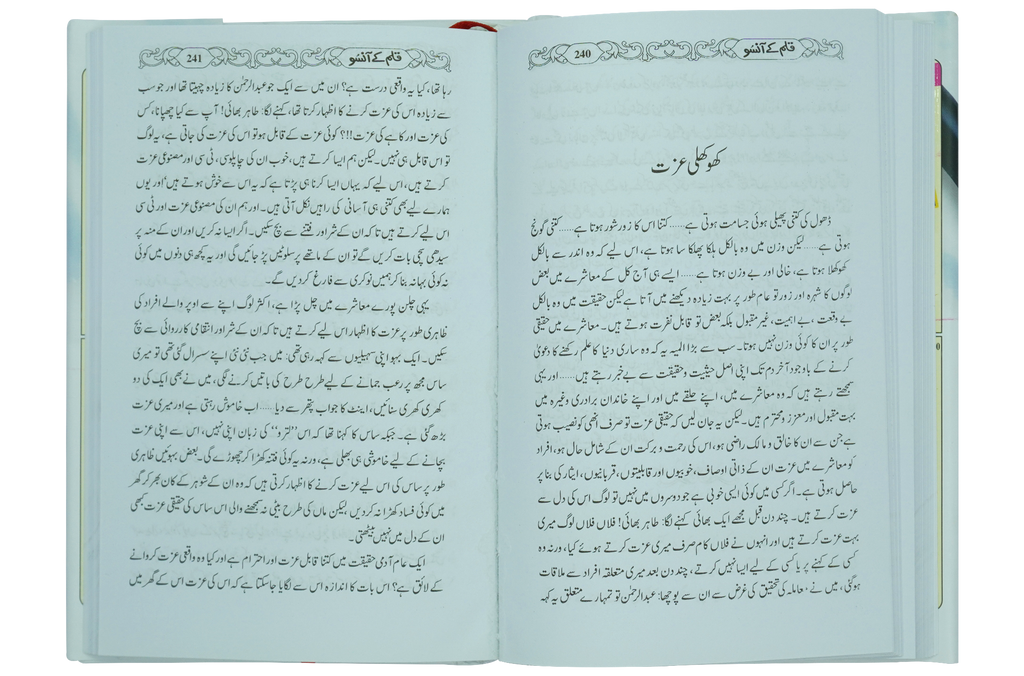 قلم کے آنسو 240
کھوکھلی عزت
ڈھول کی کتنی پھیلی ہوئی جسامت ہوتی ہے...... کتنا اس کا زور شور ہوتا ہے...... کتنی گونج
ہوتی ہے...... لیکن وزن میں وہ بالکل ہلکا پھلکا سا ہوتا ہے، اس لیے کہ وہ اندر سے بالکل
کھوکھلا ہوتا ہے، خالی اور بے وزن ہوتا ہے...... ایسے ہی آج کل کے معاشرے میں بعض
لوگوں کا شہرہ اور زور تو عام طور پر بہت زیادہ دیکھنے میں آتا ہے لیکن حقیقت میں وہ بالکل
بے وقعت، بے اہمیت، غیر مقبول بلکہ بعض تو قابل نفرت ہوتے ہیں۔ معاشرے میں حقیقی
طور پر ان کا کوئی وزن نہیں ہوتا۔ سب سے بڑا المیہ یہ کہ وہ ساری دنیا کا علم رکھنے کا دعویٰ
کرنے کے باوجود آخر دم تک اپنی اصل حیثیت و حقیقت سے بے خبر رہتے ہیں...... اور یہی
سمجھتے رہتے ہیں کہ وہ معاشرے میں، اپنے حلقے میں اور اپنے خاندان برادری وغیرہ میں
بہت مقبول اور معزز و محترم ہیں۔ لیکن یہ جان لیں کہ حقیقی عزت تو صرف انھی کو نصیب ہوتی
ہے جن سے ان کا خالق و مالک راضی ہو، اس کی رحمت و برکت ان کے شامل حال ہو، افراد
کو معاشرے میں عزت ان کے ذاتی اوصاف، خوبیوں اور قابلیتوں، قربانیوں، ایثار کی بنا پر
حاصل ہوتی ہے۔ اگر کسی میں کوئی ایسی خوبی ہے جو دوسروں میں نہیں تو لوگ اس کی دل سے
عزت کرتے ہیں۔ چند دن قبل مجھے ایک بھائی کہنے لگا: طاہر بھائی! فلاں فلاں لوگ میری
بہت عزت کرتے ہیں اور انہوں نے فلاں کام صرف میری عزت کرتے ہوئے کیا، ورنہ وہ
کسی کے کہنے پر یا کسی کے لیے ایسا نہیں کرتے، چند دن بعد میری متعلقہ افراد سے ملاقات
ہوگئی، میں نے معاملہ کی تحقیق کی غرض سے ان سے پوچھا: عبدالرحمٰن تو تمہارے متعلق یہ کہہ
قلم کے آنسو 241
رہا تھا، کیا یہ واقعی درست ہے؟ ان میں سے ایک جو عبدالرحمٰن کا زیادہ چہیتا تھا اور جو سب
سے زیادہ اس کی عزت کرنے کا اظہار کرتا تھا، کہنے لگا: طاہر بھائی! آپ سے کیا چھپانا، کس
کی عزت اور کاہے کی عزت!!؟ کوئی عزت کے قابل ہو تو اس کی عزت کی جاتی ہے، یہ لوگ
تو اس قابل ہی نہیں۔ لیکن ہم ایسا کرتے ہیں، خوب ان کی چاپلوسی، ٹی سی اور مصنوعی عزت
کرتے ہیں، اس لیے کہ یہاں ایسا کرنا ہی پڑتا ہے کہ یہ اس سے خوش ہوتے ہیں، اور یوں
ہمارے لیے بھی کتنی ہی آسانی کی راہیں نکل آتی ہیں۔ اور ہم ان کی مصنوعی عزت اور ٹی سی
اس لیے کرتے ہیں تاکہ ان کے شر اور فتنے سے بچ سکیں۔ اگر ایسا نہ کریں اور ان کے منہ پر
سیدھی سچی بات کریں گے تو ان کے ماتھے پر سلوٹیں پڑ جائیں گی اور یہ کچھ ہی دنوں میں کوئی
نہ کوئی بہانہ بنا کر ہمیں نوکری سے فارغ کردیں گے۔
یہی چلن پورے معاشرے میں چل پڑا ہے، اکثر لوگ اپنے سے اوپر والے افراد کی
ظاہری طور پر عزت کا اظہار اس لیے کرتے ہیں تاکہ ان کے شر اور انتقامی کارروائی سے بچ
سکیں۔ ایک بہو اپنی سہیلیوں سے کہہ رہی تھی: میں جب نئی نئی اپنے سسرال گئی تھی تو میری
ساس مجھ پر رعب جمانے کے لیے طرح طرح کی باتیں کرنے لگی، میں نے بھی ایک کی دو
کھری کھری سنائیں، اینٹ کا جواب پتھر سے دیا...... اب خاموش رہتی ہے اور میری عزت
بڑھ گئی ہے۔ جبکہ ساس کا کہنا تھا کہ اس ’’لترو‘‘ کی زبان اپنی نہیں، اس سے اپنی عزت
بچانے کے لیے خاموشی ہی بھلی ہے، ورنہ یہ کوئی فتنہ کھڑا کر چھوڑے گی۔ بعض بہوئیں ظاہری
طور پر ساس کی اس لیے عزت کرنے کا اظہار کرتی ہیں کہ وہ ان کے شوہر کے کان بھر کر گھر
میں کوئی فساد کھڑا نہ کردیں لیکن ماں کی طرح بیٹی نہ سمجھنے والی اس ساس کی حقیقی عزت کبھی
ان کے دل میں نہیں بیٹھتی۔
ایک عام آدمی حقیقت میں کتنا قابل عزت اور احترام ہے اور کیا وہ واقعی عزت کروانے
کے لائق ہے؟ اس بات کا اندازہ اس سے لگایا جاسکتا ہے کہ اس کی عزت اس کے گھر میں